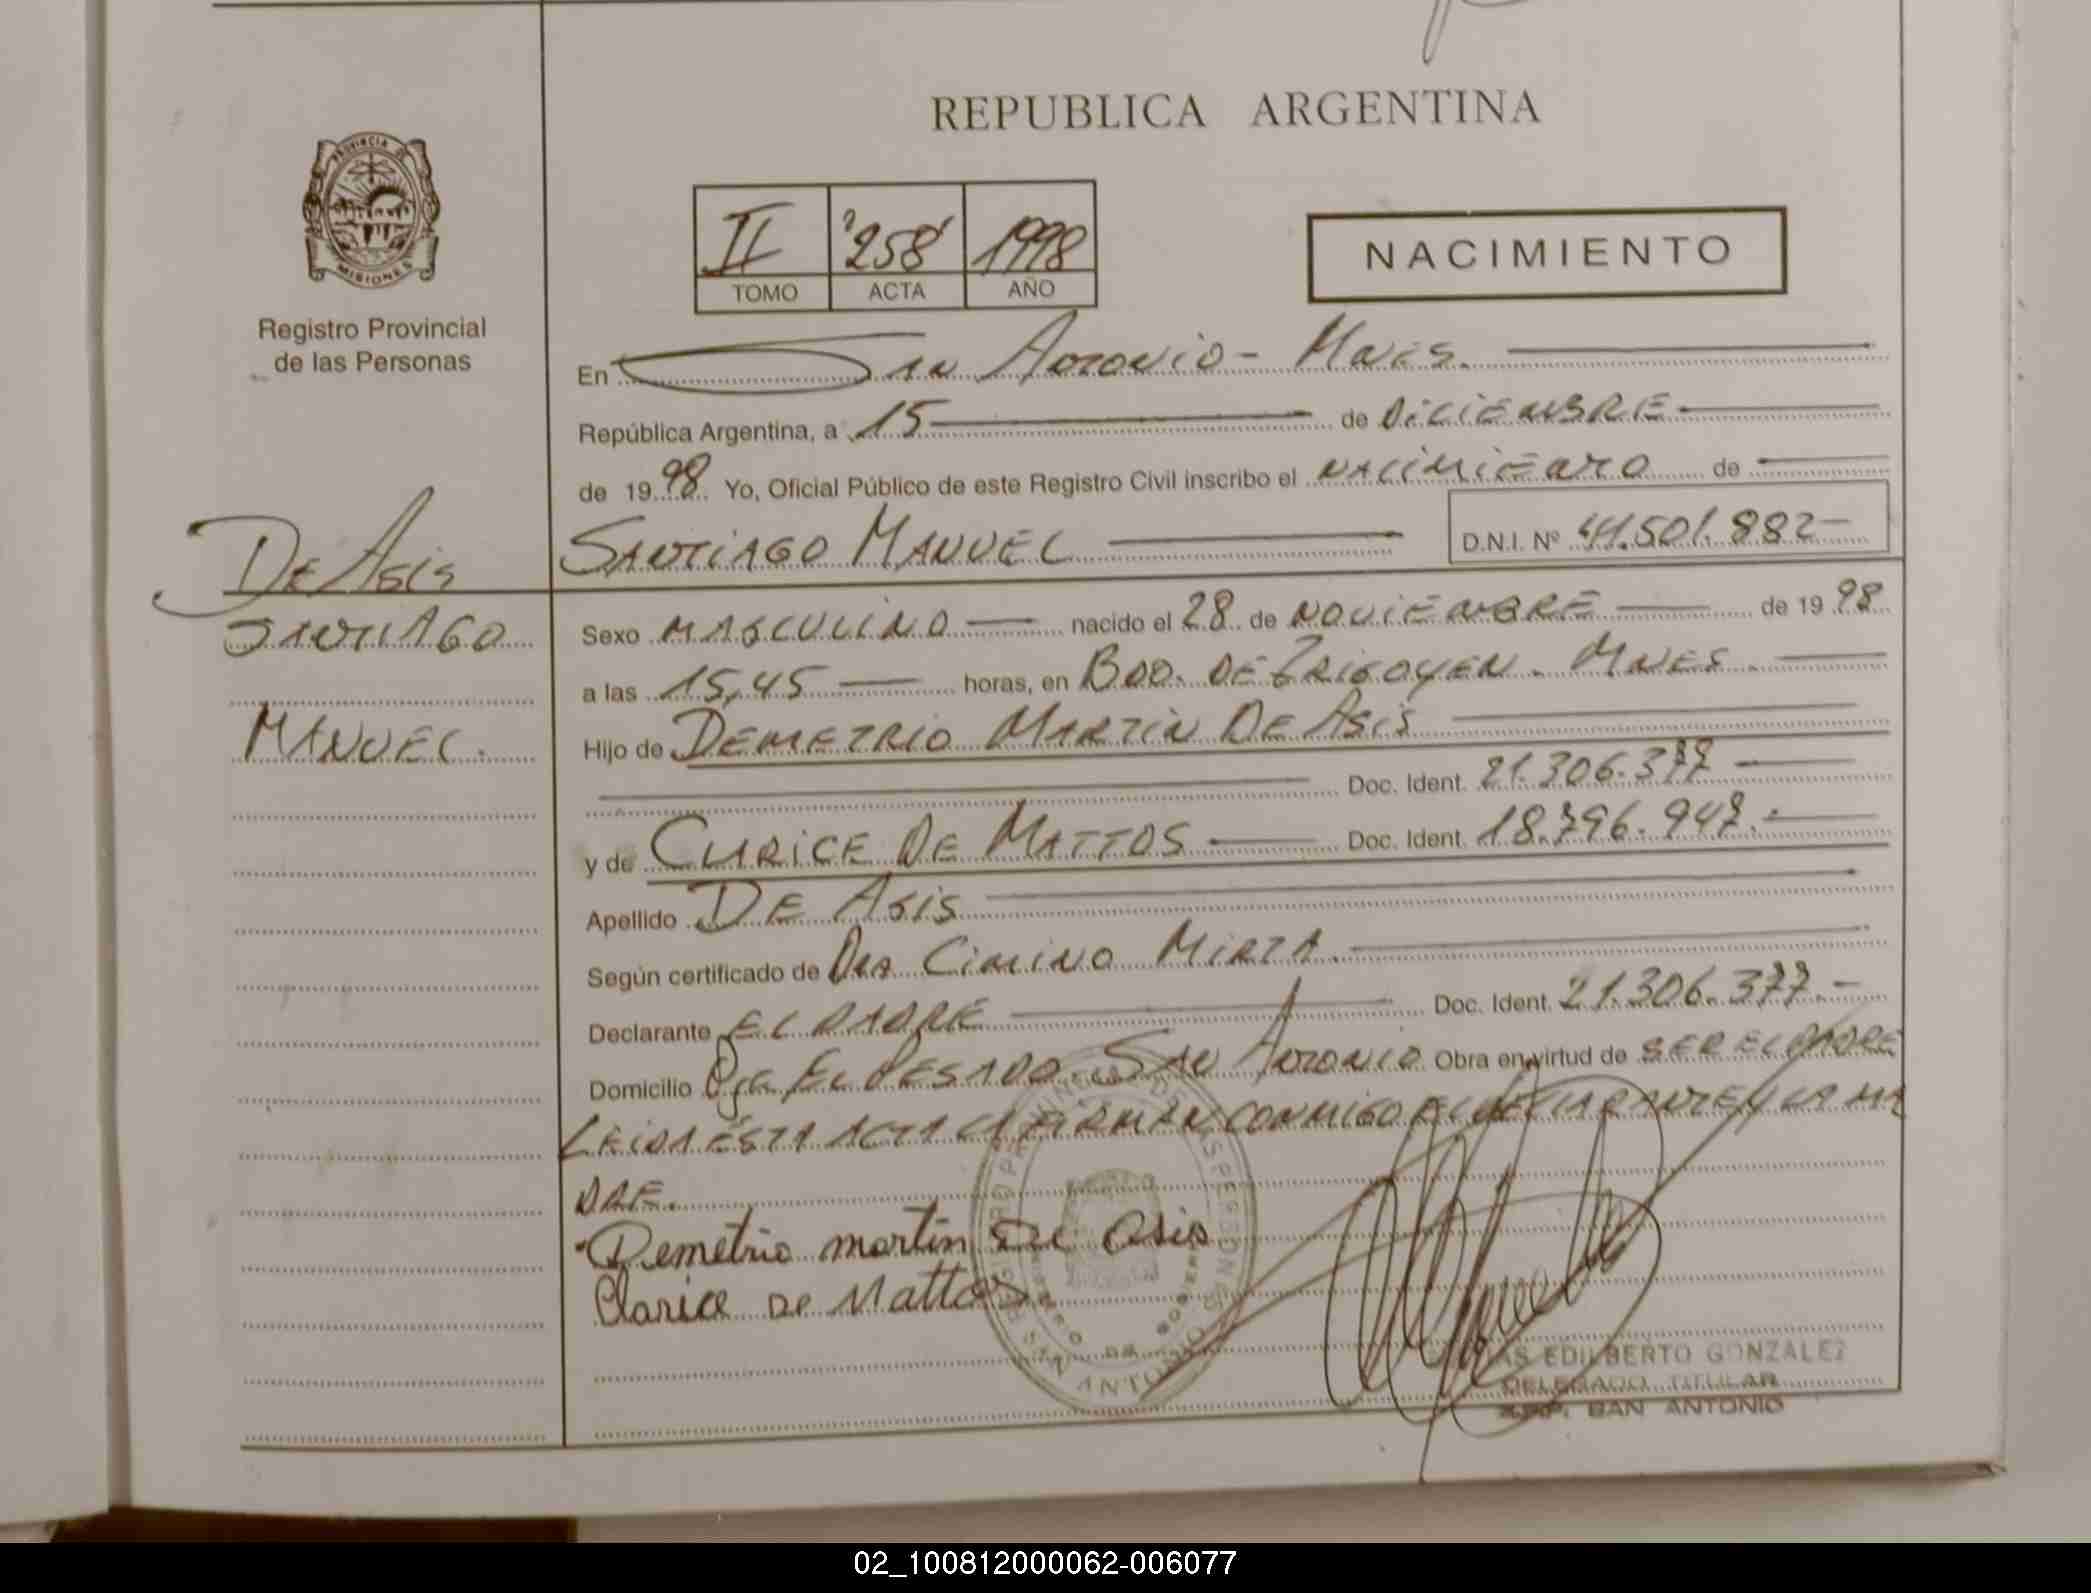 REPUBLICA ARGENTINA
PROVINCIA DE
MISIONES
Registro Provincial
de las Personas
II '258' 1998
TOMO ACTA AÑO
NACIMIENTO
En San Antonio - Mnes.
República Argentina, a 15 de DICIEMBRE
de 1998 Yo, Oficial Público de este Registro Civil inscribo el NACIMIENTO de
SANTIAGO MANUEL D.N.I. Nº 41.501.882-
DE ASIS
SANTIAGO
MANUEL.
Sexo MASCULINO nacido el 28 de NOVIEMBRE de 1998
a las 15,45 horas, en BDO. DE IRIGOYEN - MNES.
Hijo de DEMETRIO MARTIN DE ASIS
Doc. Ident. 21.306.377
y de CLARICE DE MATTOS Doc. Ident. 18.796.947.-
Apellido DE ASIS
Según certificado de DRA CIMINO MIRTA.
Declarante EL PADRE Doc. Ident. 21.306.377.-
Domicilio Pje EL PESADO - SAN ANTONIO Obra en virtud de SER EL PADRE
LEIDA ÉSTA ACTA LA FIRMAN CONMIGO EL DECLARANTE Y LA MA
DRE.
Demetrio martin De Asis
Clarice De Mattos
REGISTRO PROVINCIAL DE LAS PERSONAS
MINISTERIO DE GOBIERNO
SAN ANTONIO
EDILBERTO GONZALEZ
DELEGADO TITULAR
SAN ANTONIO
02_100812000062-006077